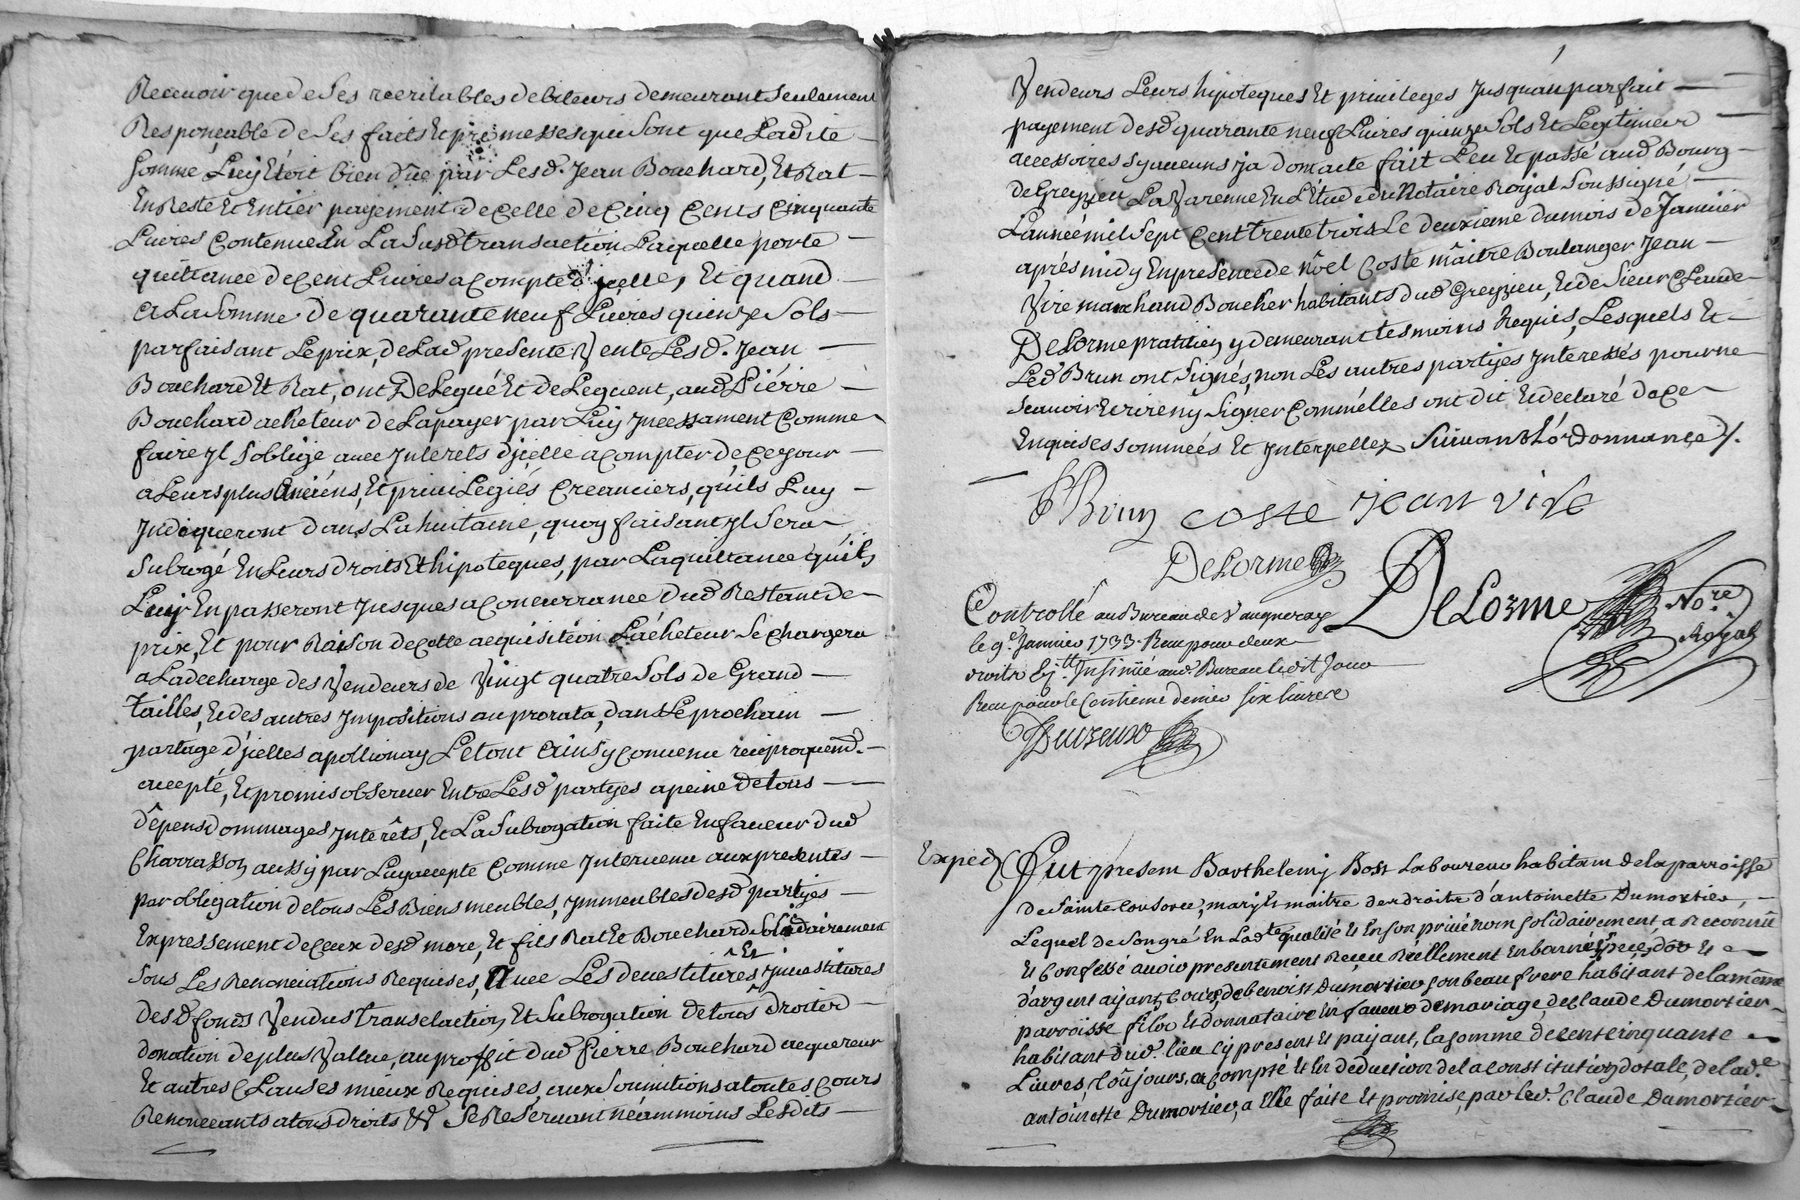 Recevoir que de ses veritables debiteurs demeurant seulement
Responçable de ses faits et promesses qui sont que Ladite
somme Luy étoit bien düe par Lesd. Jean Bouchard, et Rat
En Reste et Entier payement de celle de cinq cents cinquante
Livres contenue En La susd transaction Laquelle porte
quittance de cent Livres a compte d'jcelle, Et quand
a La somme de quarante neuf Livres quinze sols
parfaisant Le prix, de Lad presente Vente Lesd. Jean
Bouchard Et Rat, ont Delegué Et deLeguent, aud Piérre
Bouchard acheteur de La payer par Luy Jncessament comme
faire jl s'oblige avec jnterets d'jcelle a compter de ce jour
a Leurs plus Anciens, Et priviLegiés creanciers, qu'ils Luy
Jndiqueront dans La huitaine, quoy faisant jl sera
subrogé En Leurs droits Et hipoteques, par La quittance qu'ils
Luy En passeront jusques a concurrance dud Restant de
prix, Et pour Raison de celle acquisition L'acheteur se chargera
a La decharge des Vendeurs de Vingt quatre sols de Grand
Tailles, et des autres jmpositions au prorata, dans Le prochain
partage d'jcelles a pollionay L'étont ainsy convenu reciproquemt.
accepté, Et promis observer Entre Lesd partyes a peine de tous
dêpens dommages jnterêts, Et La subrogation faite En faveur dud
Charrasson aussy par Luy accepté comme jntervenu aux presentes
par obligation de tous Les Biens meubles, jmmeubles desd partyes
Expressement de ceux desd mere, Et fils Rat Et Bouchard solidairement
sous Les Renonciations Requises, Avec Les devestitures Et jnvestitures
desd fonds Vendus translaction Et subrogation de tous droits
donation de plus Vallue, au proffit dud Pierre Bouchard acquereur
Et autres Clauses mieux Requises, aux soumitions a toutes Cours
Renonceants a tous droits &c Se Reservant néammoins Lesdits
Vendeurs Leurs hipoteques Et privileges jusqu'au parfait
payement desd quarante neuf Livres quinze sols Et Legitimes
accessoires sy aucuns jl a dont acte fait Leu Et passé aud Bourg
de Grezieu La Varenne En L'étude du Notaire Royal soussigné
L'année mil sept cent trente trois Le deuxieme du mois de Janvier
aprés midy En presence de nôel Coste mâitre Boulanger Jean
Vire marchand Boucher habitants dud Grezieu, Et de sieur Claude
DeLorme pratitien y demeurant tesmoins Requis, Lesquels Et
Led Brun ont signés, non Les autres partyes jnteressés pour ne
scavoir Ecrire ny signer comm'elles ont dit Et declaré de ce
Enquises sommeés Et jnterpellez suivant L'ordonnance ./.
Brun coste jean vire
DeLorme
DeLorme Nore.
Royal
Controllé au Bureau de Vaugneray
le 9e. Janvier 1733. Recu pour deux
droits Insinüé aud. Bureau ledit Jour
Recu pour le Centieme denier six livres
Expedé
Fut present Barthelemy Bost Laboureur habitant de la parroisse
de sainte Consorce, mary Et maitre des droits d'antoinette Dumortier,
Lequel de son gré En Lad.te qualité Et En son privé nom solidairement, a Reconnu
Et Confessé avoir presentement Reçu Réellement En bonnes Especes d'or Et
d'argent ayant, Cours, de benoist Dumortier son beau frere habitant de la même
parroisse, filx Et donnataire En faveur de mariage, de Claude Dumortier
habitant dud. lieu Cy present Et payant, la somme de cent cinquante
Livres, toûjours, a Compte Et En deduction de la Constitution dotale, de lad.e
antoinette Dumortier, a Elle faite Et promise, par led. Claude Dumortier